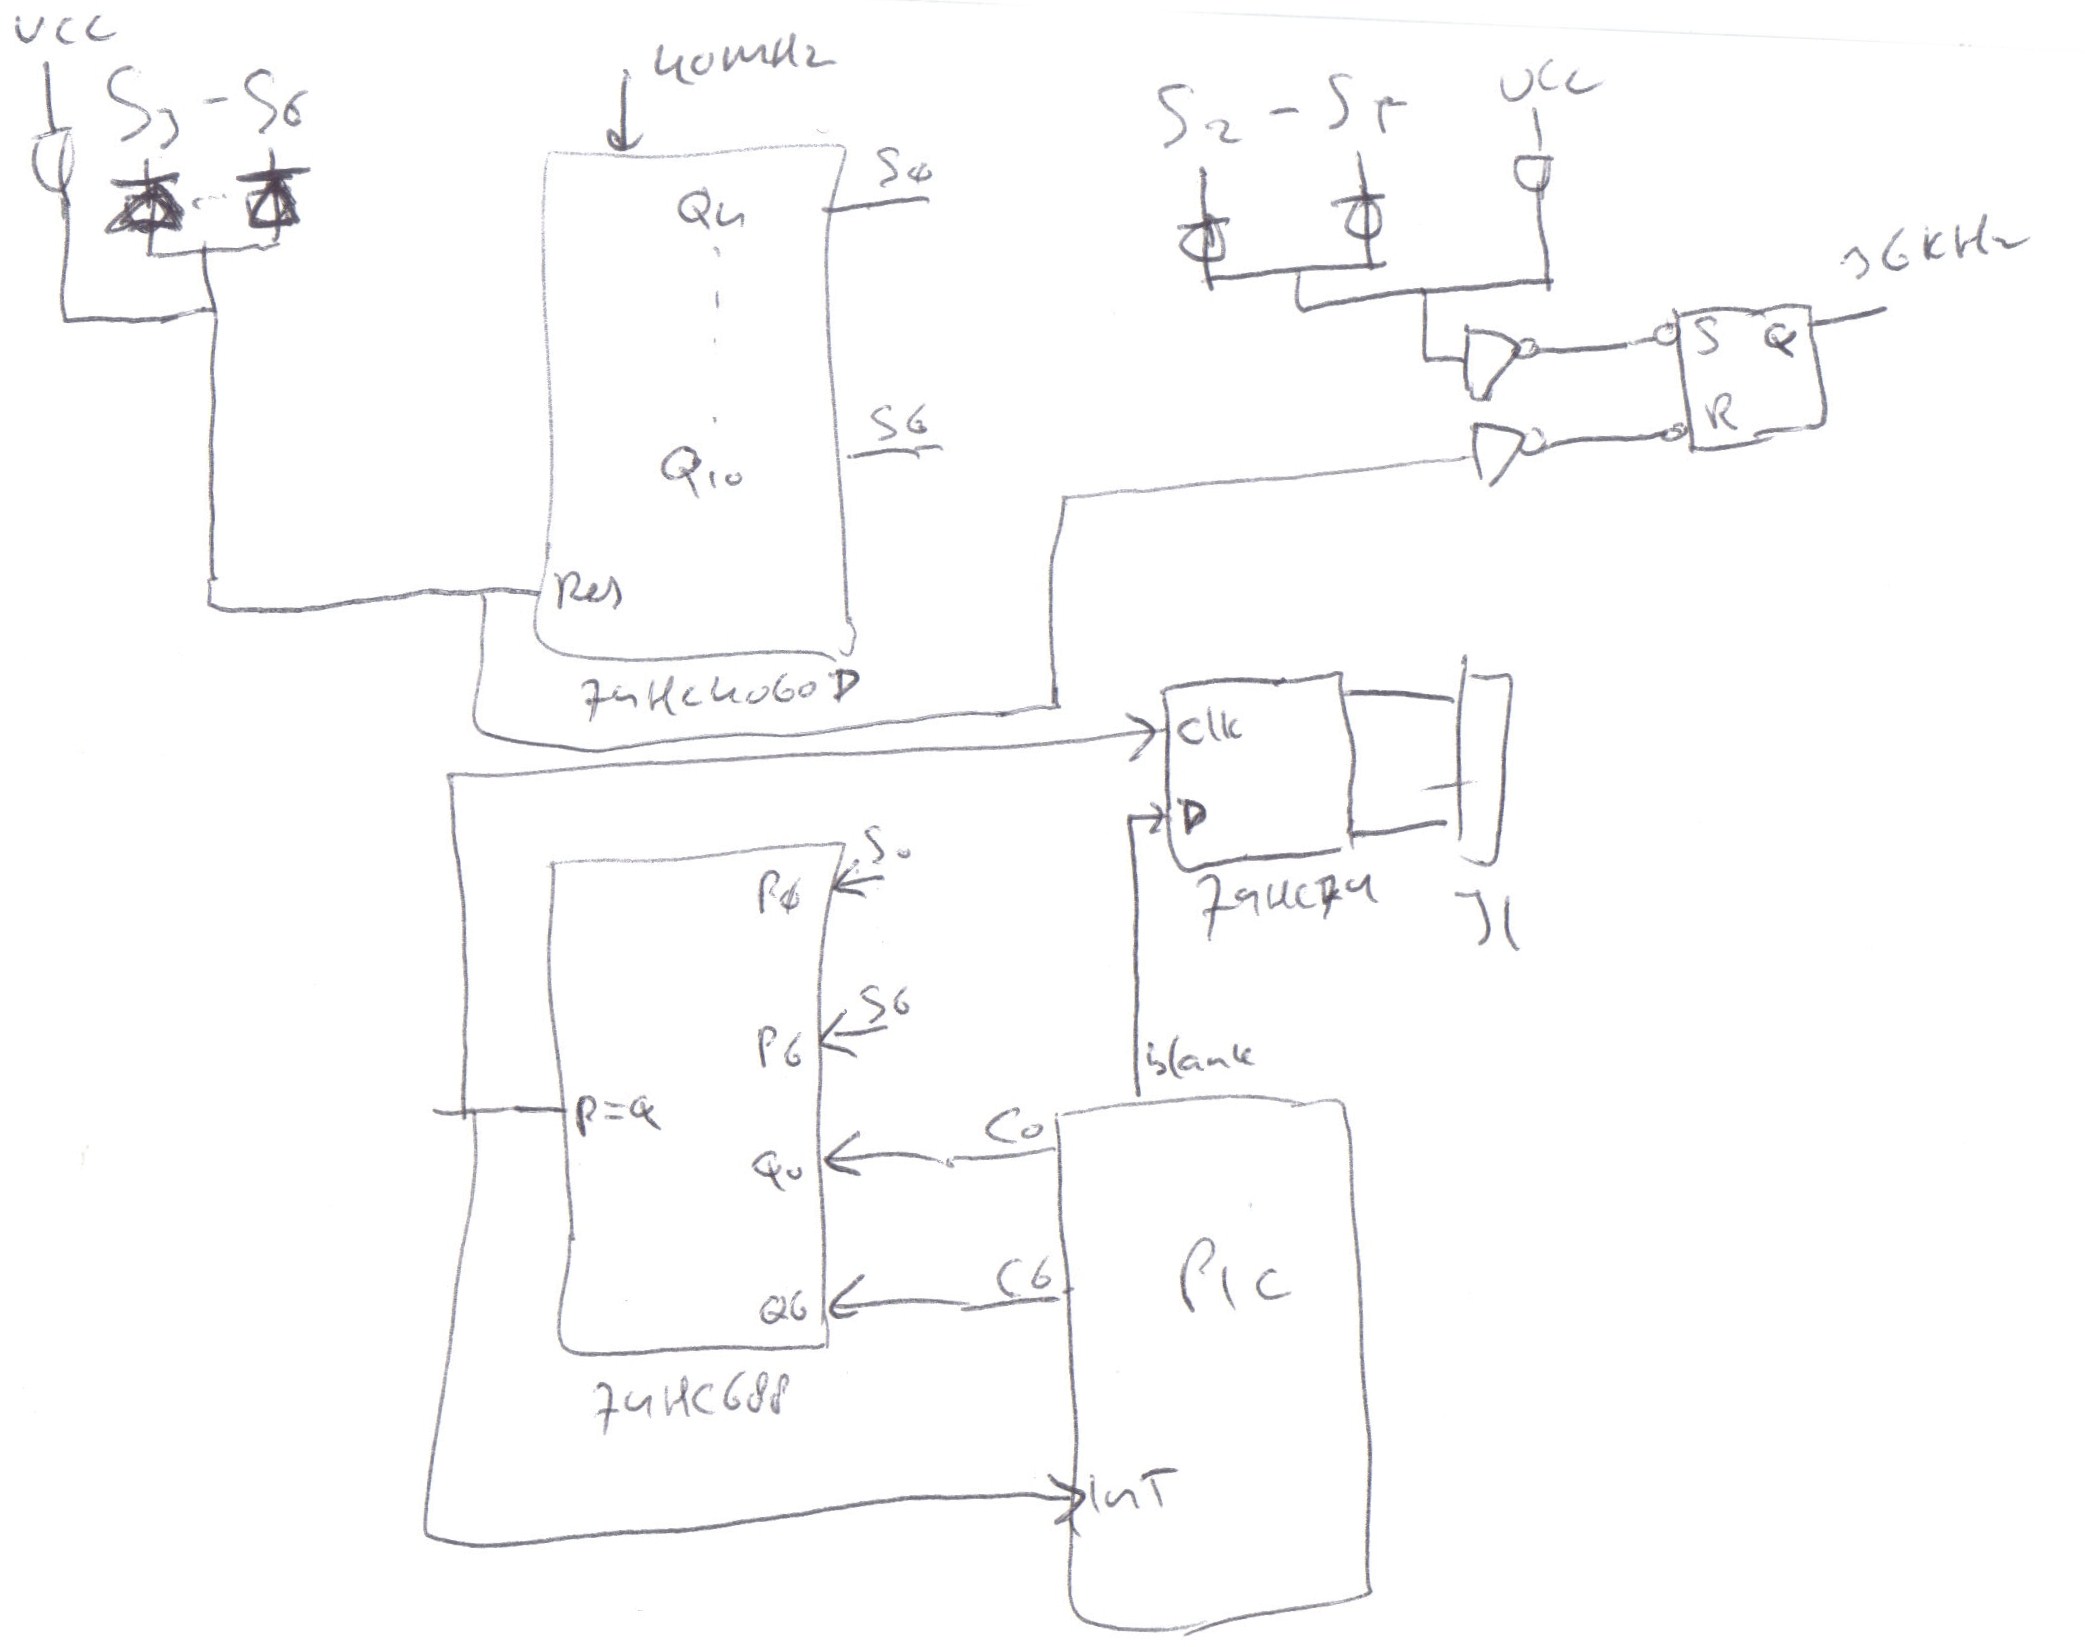 VCC
S3 - S6
40MHz
Q4
S0
Q10
S6
Res
74HC4060D
S2 - S5
VCC
36KHz
S Q
R
Clk
D
74HC74
J1
P0
S0
P6
S6
P=Q
Q0
C0
Q6
C6
74HC688
blank
PIC
INT